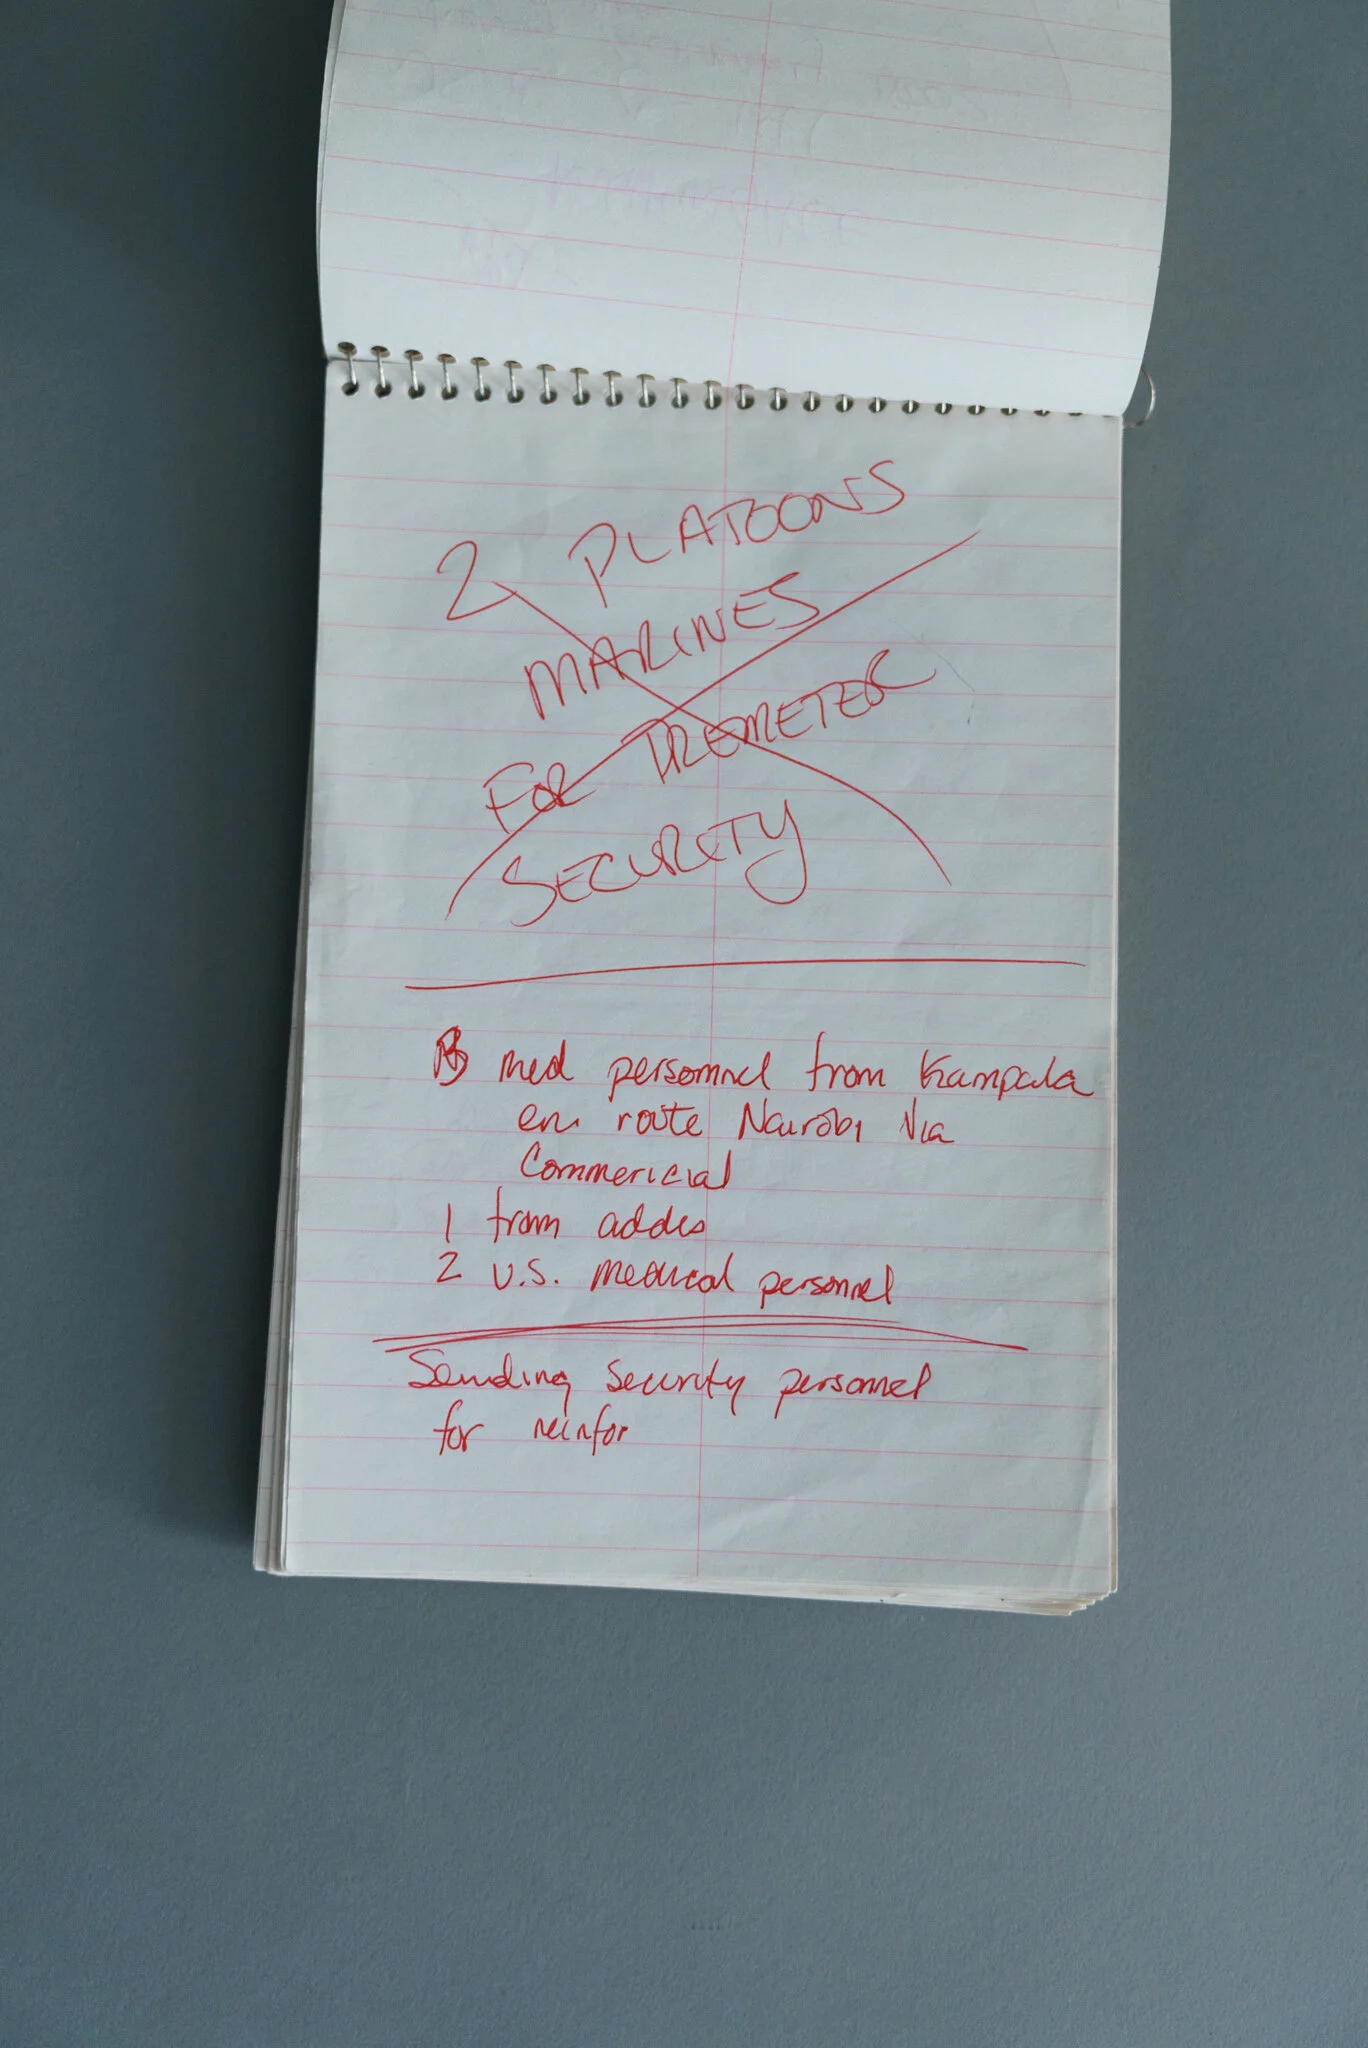 2 PLATOONS
MARINES
FOR PREMETER
SECURITY
med personnel from Kampala
en route Nairobi Via
Commericial
1 from addis
2 U.S. medical personnel
Sending security personnel
for reinfor